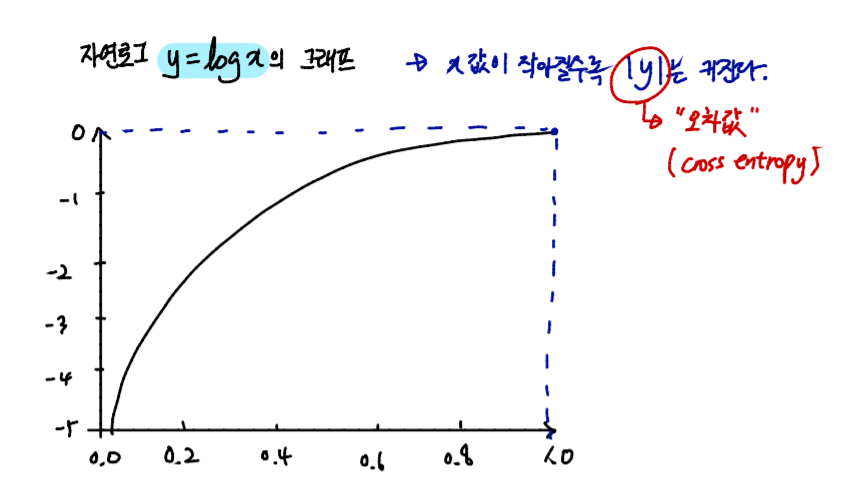 자연로그 y=log x의 그래프 → x값이 작아질수록 |y|는 커진다.
↳ "오차값"
(cross entropy)
0
-1
-2
-3
-4
-5
0.0 0.2 0.4 0.6 0.8 1.0